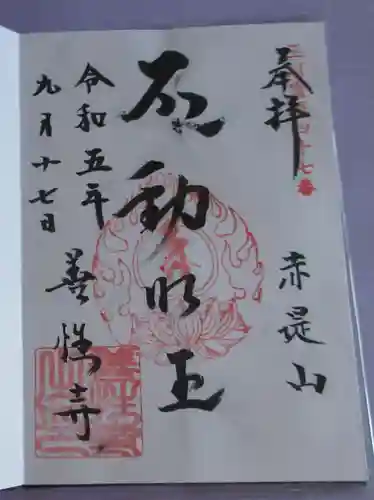 奉拝
十七番
赤是山
不動明王
令和五年
善性寺
九月十七日